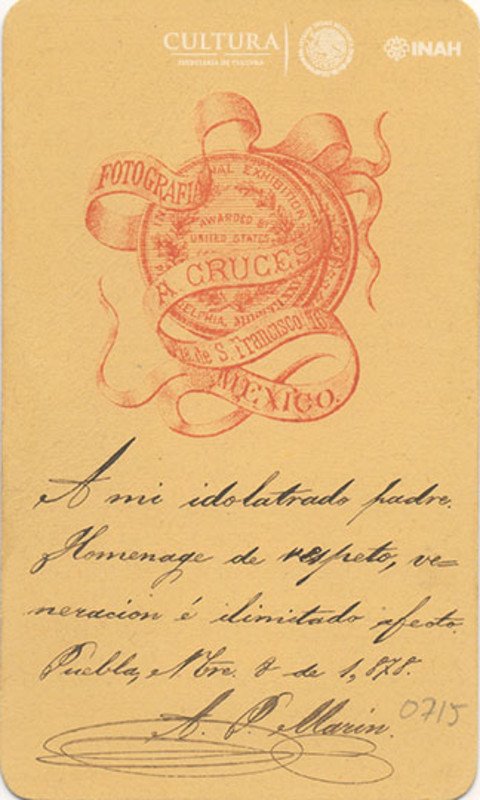 CULTURA
SECRETARÍA DE CULTURA
INAH
FOTOGRAFIA
INTERNATIONAL EXHIBITION
AWARDED BY
UNITED STATES
A. CRUCES
PHILADELPHIA,
de S. Francisco
MEXICO.
A mi idolatrado padre.
Homenage de respeto, ve=
neracion é ilimitado afecto.
Puebla, Nbre. 8 de 1,878.
A. P. Marin.
0715